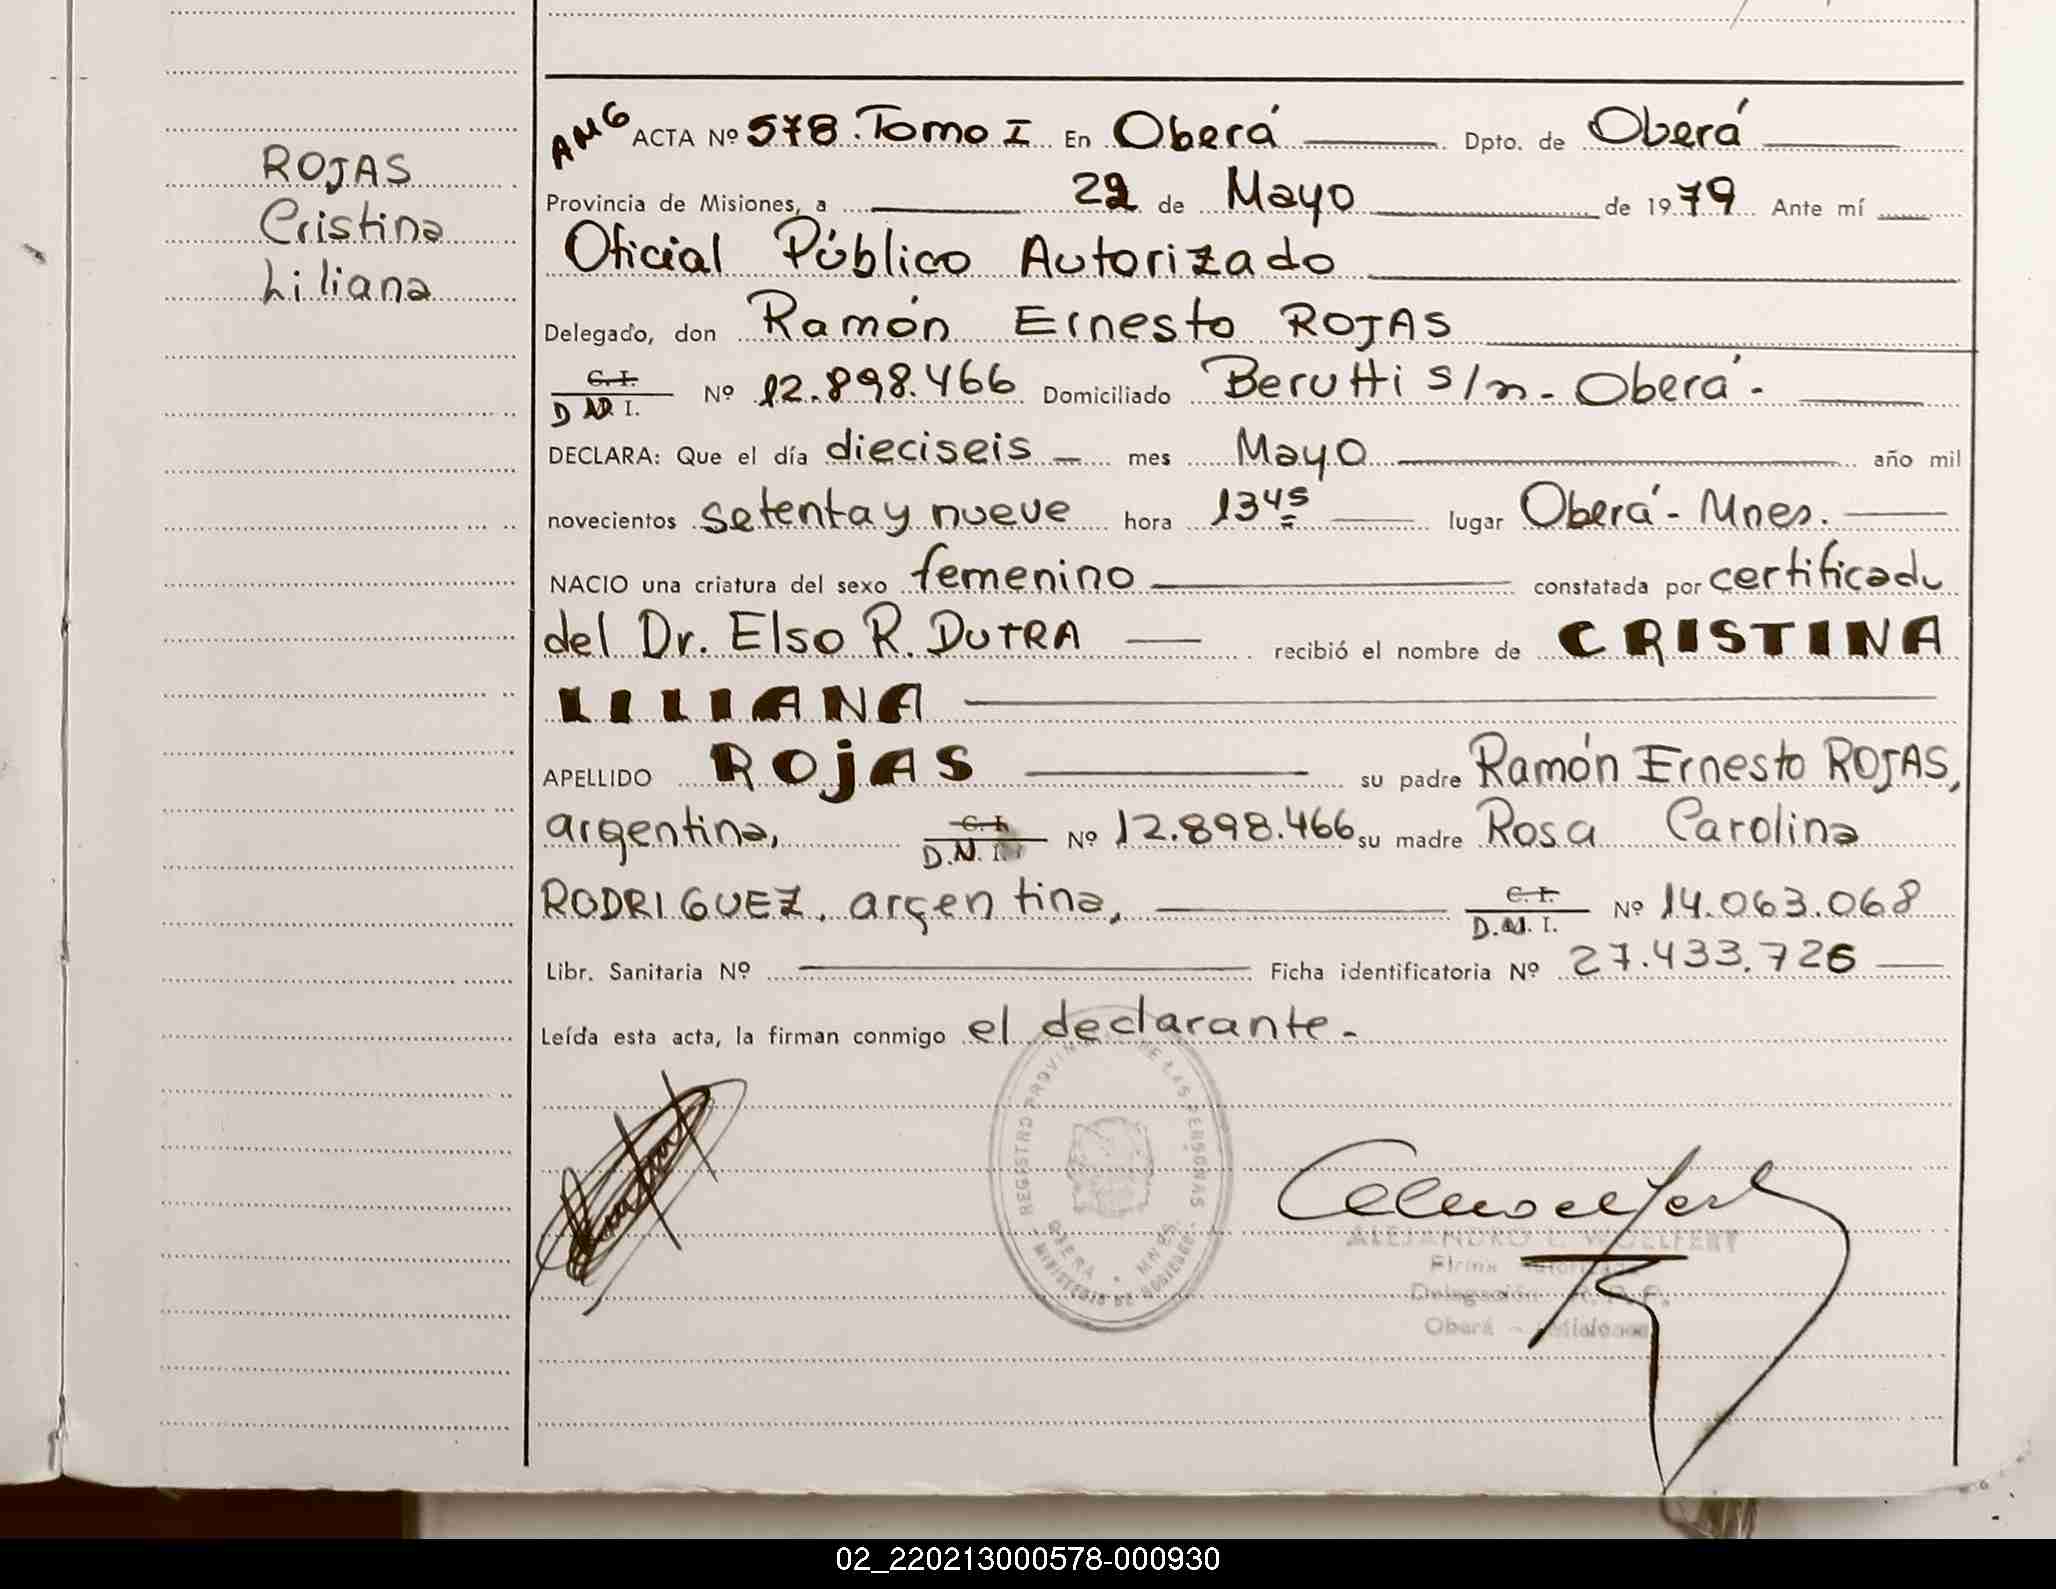 ROJAS
Cristina
Liliana
AMG ACTA Nº 578. Tomo I En Oberá Dpto. de Oberá
Provincia de Misiones, a 22 de Mayo de 1979 Ante mí
Oficial Público Autorizado
Delegado, don Ramón Ernesto ROJAS
C. I.
D.N.I. Nº 12.898.466 Domiciliado Berutti s/n - Oberá -
DECLARA: Que el día dieciseis mes Mayo año mil
novecientos setenta y nueve hora 13 45 lugar Oberá - Mnes.
NACIO una criatura del sexo femenino constatada por certificado
del Dr. Elso R. DUTRA recibió el nombre de CRISTINA
LILIANA
APELLIDO ROjAS su padre Ramón Ernesto ROJAS,
argentina, C. I. D.N.I. Nº 12.898.466 su madre Rosa Carolina
RODRIGUEZ, argentina, C. I. D.N.I. Nº 14.063.068
Libr. Sanitaria Nº Ficha identificatoria Nº 27.433.726
Leída esta acta, la firman conmigo el declarante.-
REGISTRO PROVINCIAL DE LAS PERSONAS
OBERA • MNES.
MINISTERIO DE GOBIERNO
ALEJANDRO L. WOELFERT
Firma Autorizada
Delegación R.P.P.
Oberá - Misiones
02_220213000578-000930